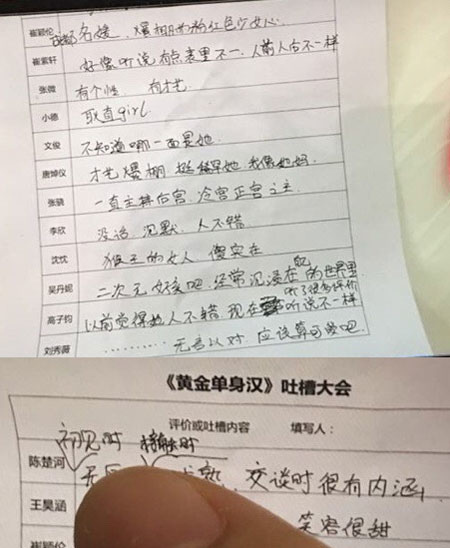 崔颖伦 成都名媛 爆棚的粉红色少女心
崔紫轩 好像听说有点表里不一,人前人后不一样
张微 有个性 有才艺
小德 耿直girl
文俊 不知道哪一面是她
唐婥仪 才艺爆棚 挺 她
张骁 一直主持后宫,冷宫正宫之主
李欣 没话 沉默,人不错
沈忱 猴王的女人 傻实在
吴丹妮 二次元女孩吧 经常沉浸在自己的世界里
高子钧 以前觉得她人不错 现在听了很多评价听说不一样
刘秀薇 ……… 无言以对,应该算可爱吧
《黄金单身汉》吐槽大会
评价或吐槽内容 填写人:
初见时 接触时
陈楚河 成熟,交谈时很有内涵
王昊涵 笑容很甜
崔颖伦